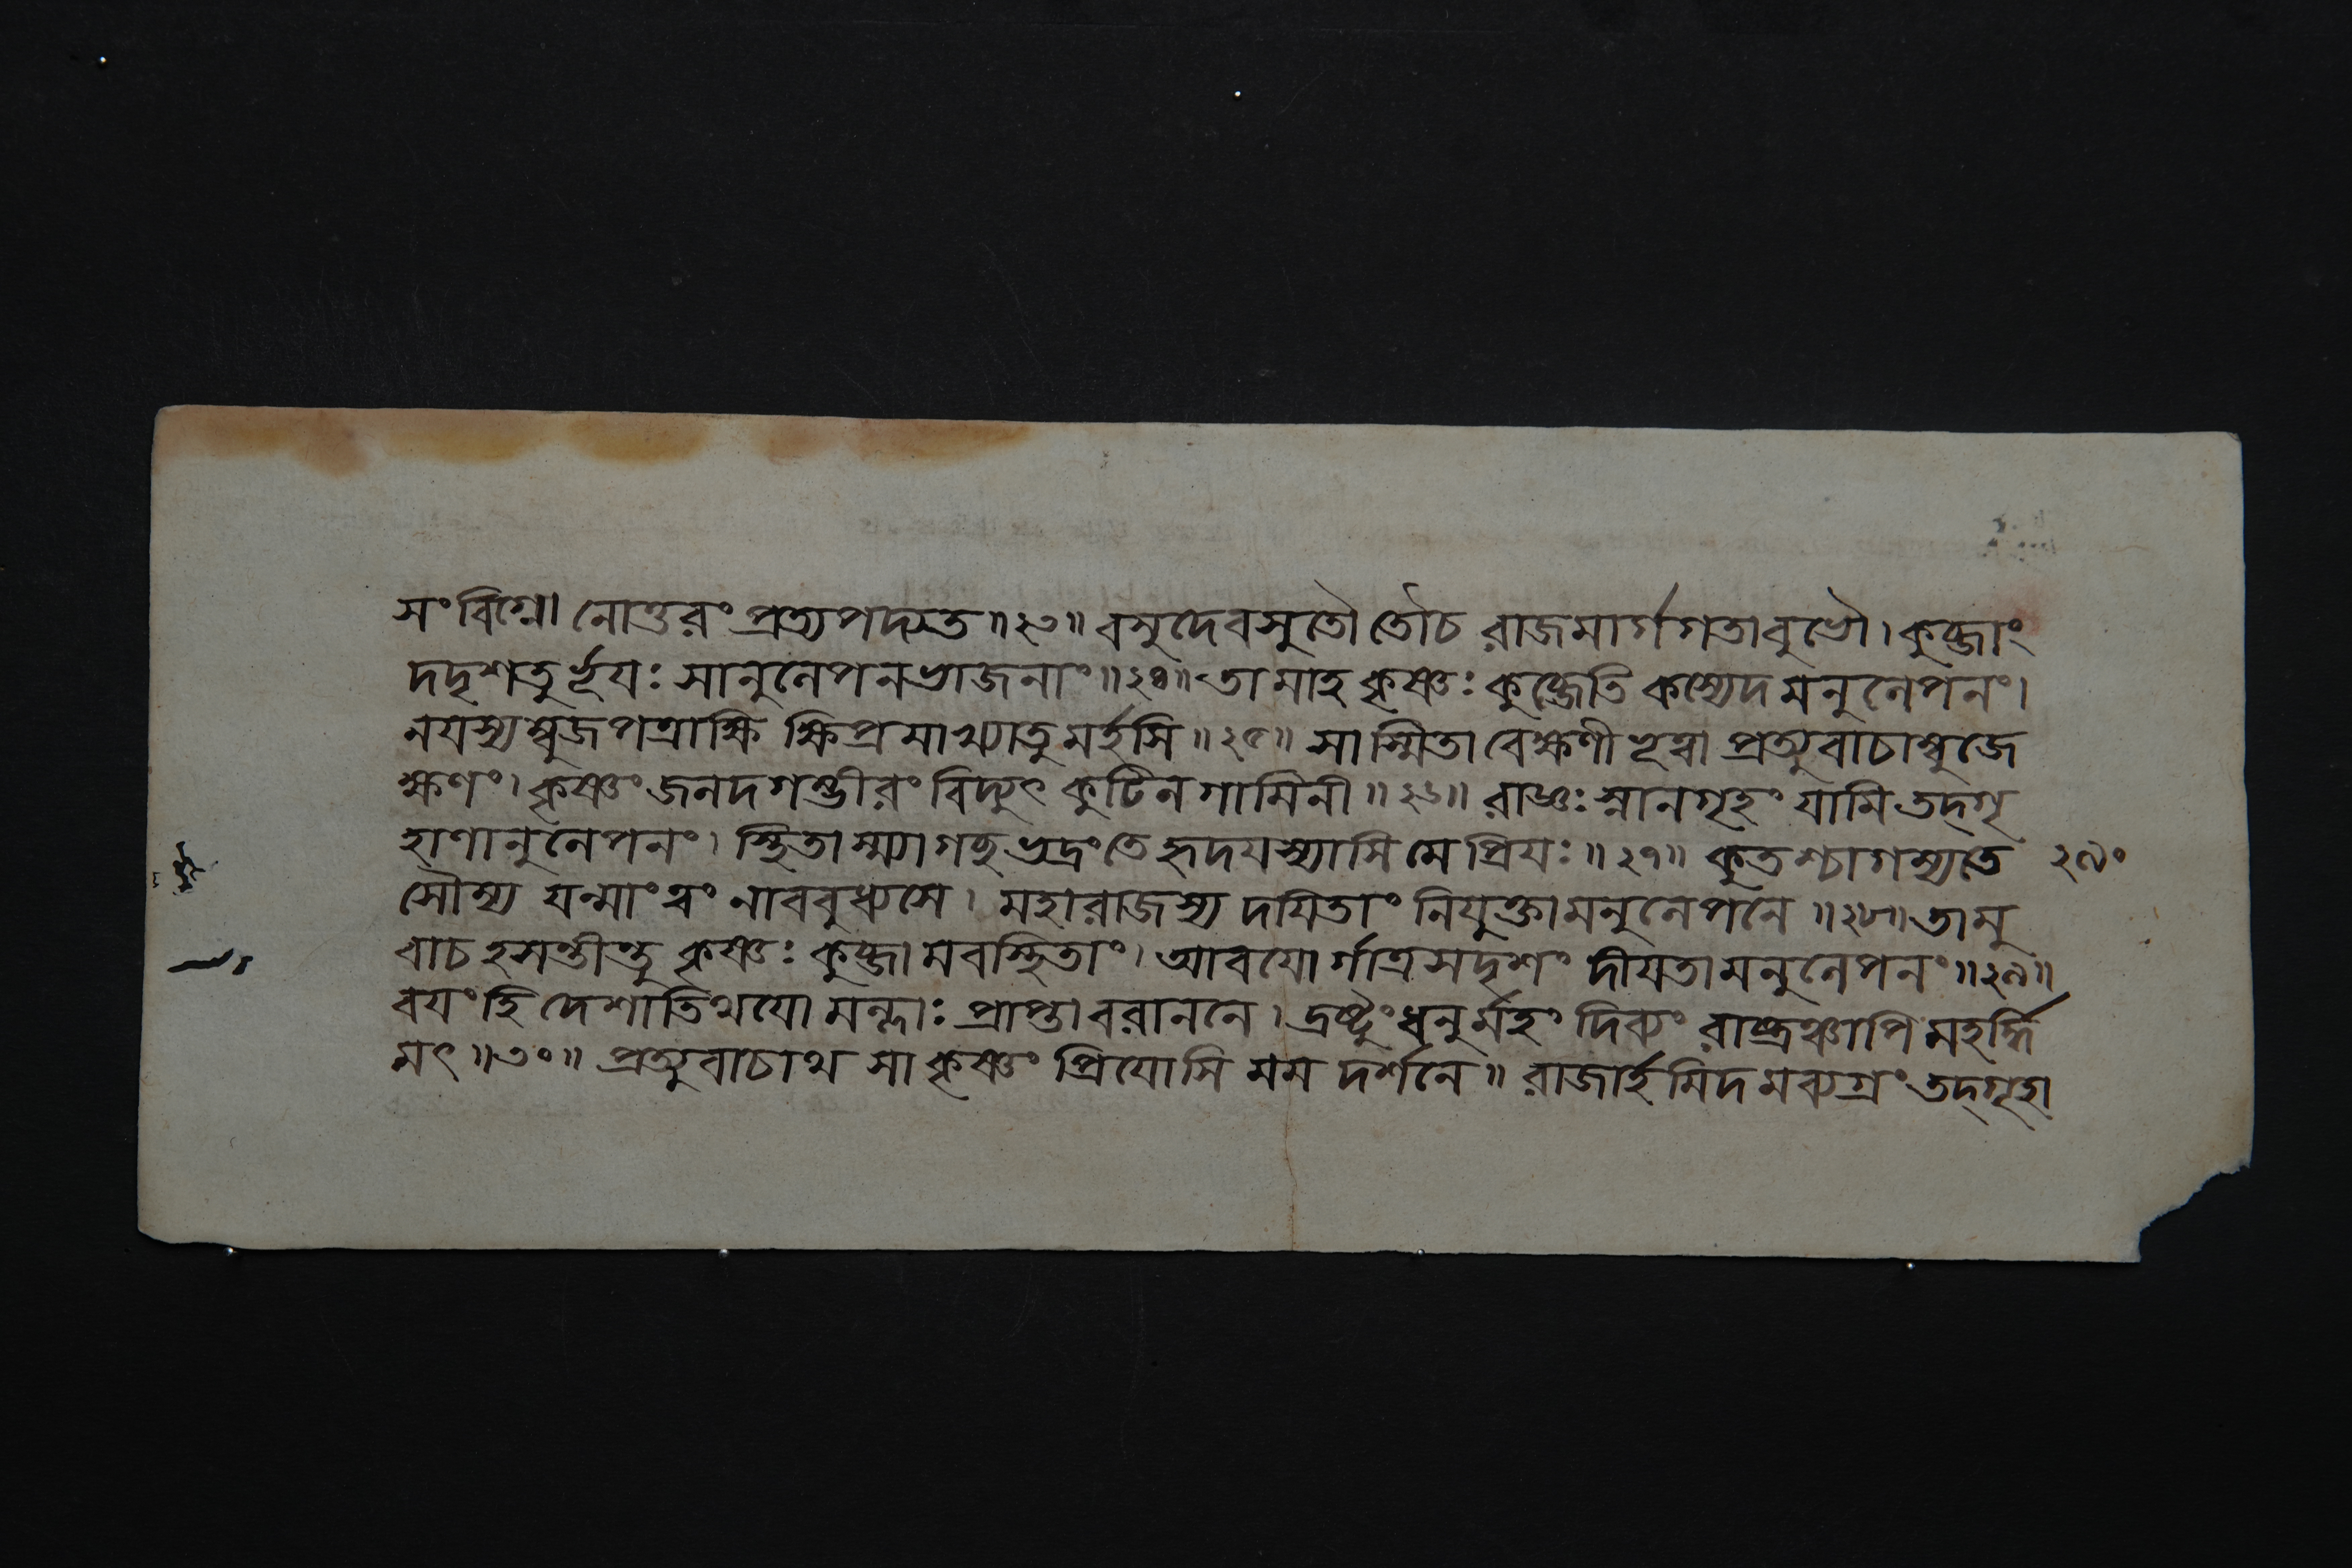 সংবিগ্নো নোত্তরং প্রত্যপদ্যত॥২৩॥ বসুদেবসুতৌ তৌচ রাজমার্গগতাবুভৌ। কুব্জাং
দদৃশতুর্ভূয়ঃ সানুলেপনভাজনাং॥২৪॥ তামাহ কৃষ্ণঃ কুব্জেতি কস্যেদমনুলেপনং।
নয়স্যম্বুজপত্রাক্ষি ক্ষিপ্রমাখ্যাতুমর্হসি॥২৫॥ সাস্মিতাবেক্ষণী ভূত্বা প্রত্যুবাচাম্বুজে
ক্ষণং। কৃষ্ণং জলদগম্ভীরং বিদ্যুৎ কুটিলগামিনী॥২৬॥ রাজ্ঞঃ স্নানগৃহং যামি তদ্গৃ
হাণানুলেপনং। স্থিতাস্ম্যাগচ্ছ ভদ্রংতে হৃদয়স্যাসি মে প্রিয়ঃ॥২৭॥ কুতশ্চাগম্যতে ২৯০
সৌম্য যন্মাং ত্বং নাববুধ্যসে। মহারাজস্য দয়িতাং নিযুক্তামনুলেপনে॥২৮॥ তামু
বাচ হসন্তীন্তু কৃষ্ণঃ কুব্জামবস্থিতাং। আবয়োর্গাত্রসদৃশং দীয়তামনুলেপনং॥২৯॥
বয়ং হি দেশাতিথয়ো মল্লাঃ প্রাপ্তা বরাননে। দ্রষ্টুং ধনুর্মহং দিব্যং রাষ্ট্রঞ্চাপি মহর্দ্ধি
মৎ॥৩০॥ প্রত্যুবাচাথ সা কৃষ্ণং প্রিয়োসি মম দর্শনে॥ রাজার্হমিদমব্যগ্রং তদ্গৃহা